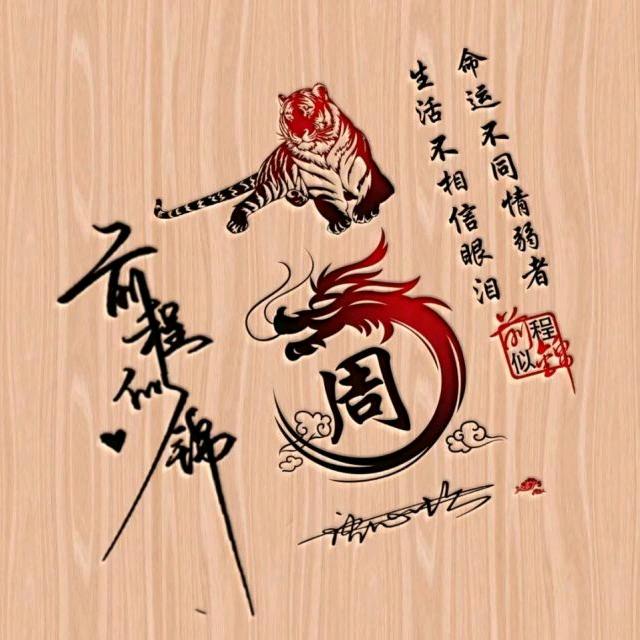 命运不同情弱者
生活不相信眼泪
前程似锦
前程似锦
周